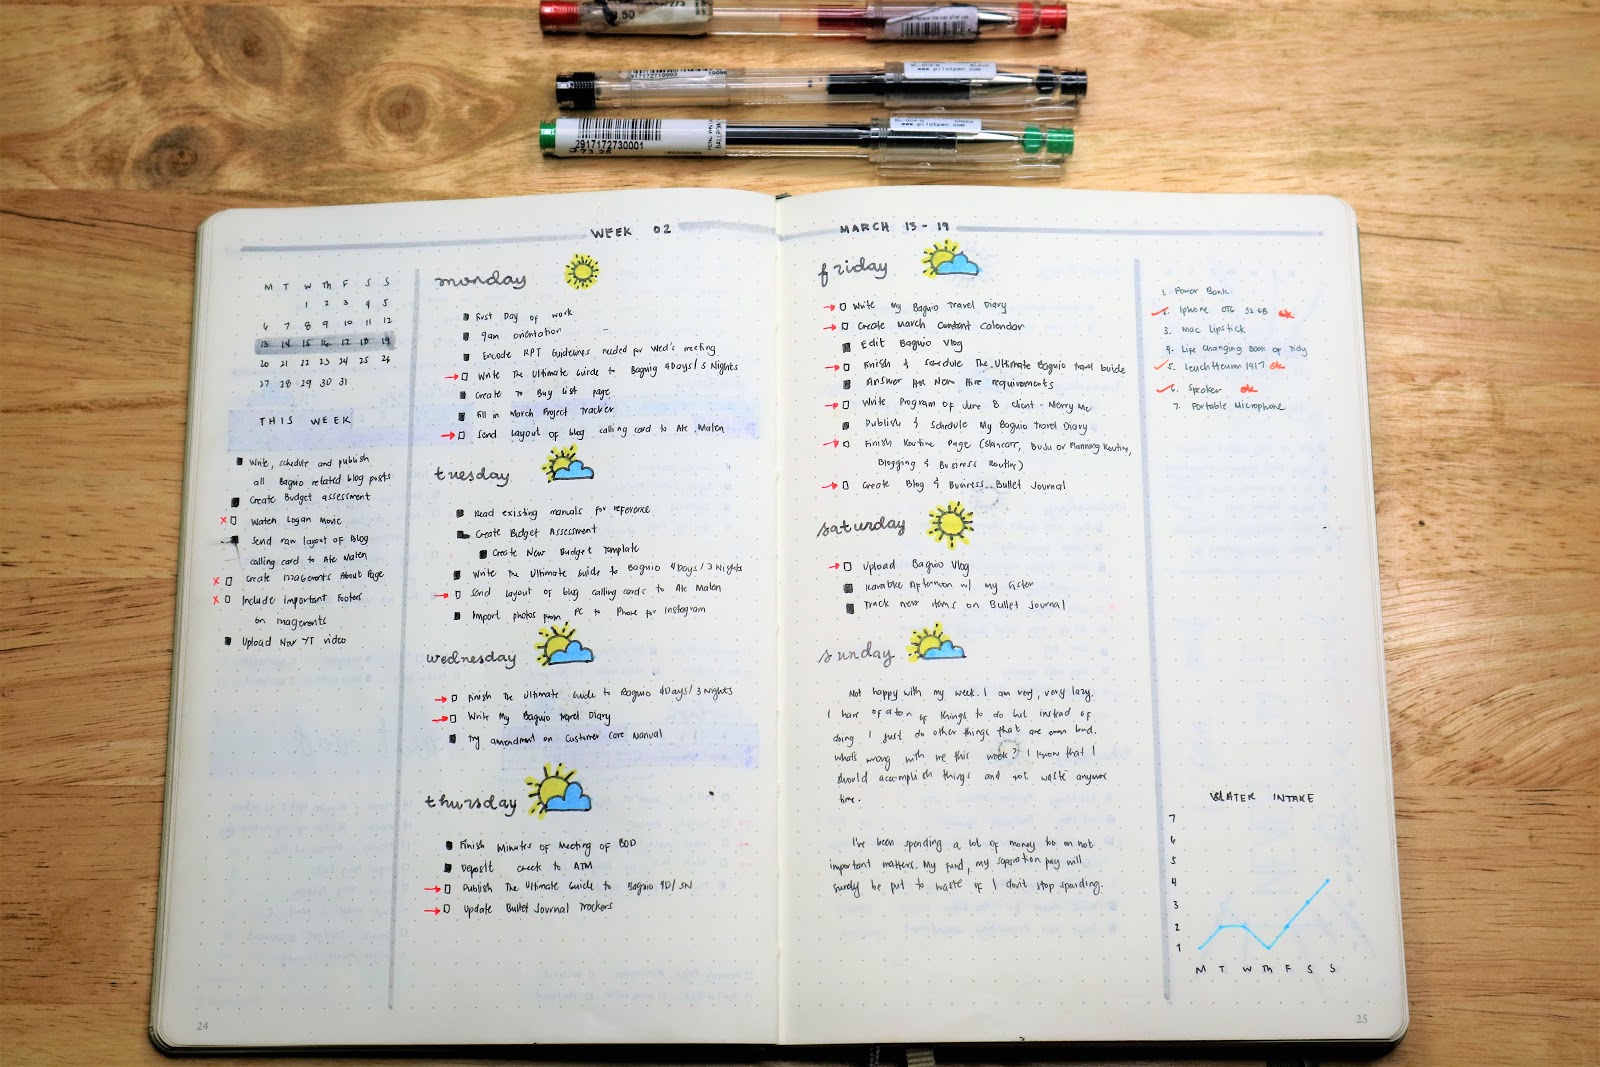 9.50
2917172710003
www.pilotpen.com
BL-GC4-G GREEN
www.pilotpen.com
2917172730001
WEEK 02
M T W Th F S S
1 2 3 4 5
6 7 8 9 10 11 12
13 14 15 16 17 18 19
20 21 22 23 24 25 26
27 28 29 30 31
THIS WEEK
Write, schedule and publish
all Baguio related blog posts
Create Budget assessment
x Watch Logan Movie
Send raw layout of Blog
calling card to Ate Malen
x Create Imagerents About Page
x Include important Footers
on imagerents
Upload New YT video
monday
First Day of work
9am orientation
Encode RPT Guidelines needed for Wed's meeting
Write The Ultimate Guide to Baguio 4Days/3 Nights
Create To Buy List page
Fill in March Project Tracker
Send Layout of blog calling card to Ate Malen
tuesday
Read existing manuals for reference
Create Budget Assessment
Create New Budget Template
Write The Ultimate Guide to Baguio 4Days/3 Nights
Send Layout of blog calling cards to Ate Malen
Import photos from PC to Phone for Instagram
wednesday
Finish The Ultimate Guide to Baguio 4Days/3 Nights
Write My Baguio Travel Diary
Try amendment on Customer Care Manual
thursday
Finish Minutes of Meeting of BOD
Deposit check to ATM
Publish The Ultimate Guide to Baguio 4D/3N
Update Bullet Journal Trackers
24
MARCH 13 - 19
friday
Write My Baguio Travel Diary
Create March Content Calendar
Edit Baguio Vlog
Finish & Schedule The Ultimate Baguio travel Guide
Answer HR New Hire requirements
Write Program of June 8 client - Merry Mc
Publish & Schedule My Baguio Travel Diary
Finish Routine Page (Skincare, BuJu or Planning Routine,
Blogging & Business Routine)
Create Blog & Business Bullet Journal
saturday
Upload Baguio Vlog
Afternoon w/ my Sister
Track new items on Bullet Journal
sunday
Not happy with my week. I am very, very lazy.
I have of a ton of things to do but instead of
doing I just do other things that are even bad.
What's wrong with me this week? I know that I
should accomplish things and not waste anymore
time.
I've been spending a lot of money too on not
important matters. My fund, my separation pay will
surely be put to waste if I don't stop spending.
1. Power Bank
2. Iphone OTG 32 GB ok
3. Mac Lipstick
4. Life Changing Book of Tidy
5. Leuchtturm 1917 ok
6. Speaker ok
7. Portable Microphone
WATER INTAKE
7
6
5
4
3
2
1
M T W Th F S S
25